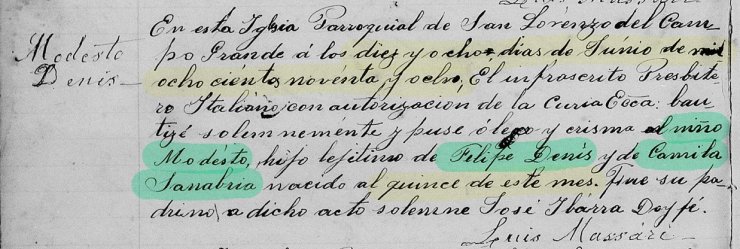 En esta Iglsia Parroquial de San Lorenzo del Cam-
Modesto
Denis
po Grande á los diez y ocho dias de Júnio de mil
ocho cientos noventa y ocho, El infrascrito Presbite-
ro Italiano con autorizacion de la Curia Ecca: bau-
tizé solemnemente y puse óleo y crisma al niño
Modésto, hijo lejitimo de Felipe Denis y de Camila
Sanabria nacido al quince de este mes. Fue su pa-
drino a dicho acto solemne José Ibarra Doy fé.
Luis Massári